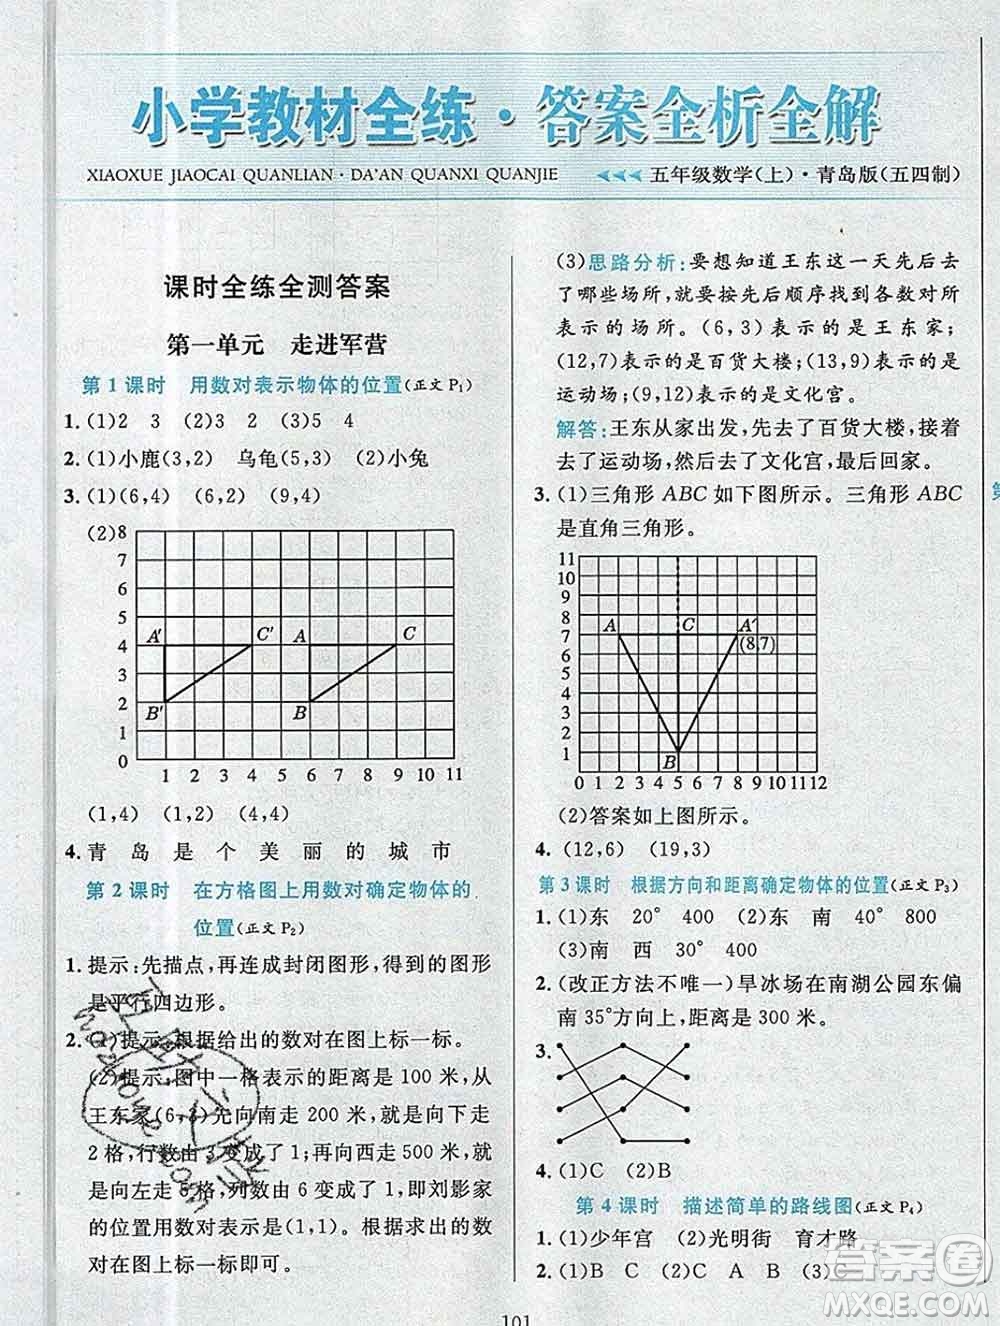 小学教材全练·答案全析全解
XIAOXUE JIAOCAI QUANLIAN · DA'AN QUANXI QUANJIE
五年级数学(上)·青岛版(五四制)
课时全练全测答案
第一单元 走进军营
第1课时 用数对表示物体的位置(正文P₁)
1.(1)2 3 (2)3 2 (3)5 4
2.(1)小鹿(3,2) 乌龟(5,5) (2)小兔
3.(1)(6,4) (6,2) (9,4)
(2)
8
7
6
5
4
3
2
1
0
A' C' A C
B' B
1 2 3 4 5 6 7 8 9 10 11
(1,4) (1,2) (4,4)
4.青 岛 是 个 美 丽 的 城 市
第2课时 在方格图上用数对确定物体的
位置(正文P₂)
1.提示:先描点,再连成封闭图形,得到的图形
是平行四边形。
2.(1)提示:根据给出的数对在图上标一标。
(2)提示:图中一格表示的距离是100米,从
王东家(6,3)先向南走200米,就是向下走
2格,行数由3变成了1;再向西走500米,就是
向左走5格,列数由6变成了1,即刘影家
的位置用数对表示是(1,1)。根据求出的数
对在图上标一标即可。
(3)思路分析:要想知道王东这一天先后去
了哪些场所,就要按先后顺序找到各数对所
表示的场所。(6,3)表示的是王东家;
(12,7)表示的是百货大楼;(13,9)表示的是
运动场;(9,12)表示的是文化宫。
解答:王东从家出发,先去了百货大楼,接着
去了运动场,然后去了文化宫,最后回家。
3.(1)三角形ABC如下图所示。三角形ABC
是直角三角形。
11
10
9
8
7
6
5
4
3
2
1
A C A'
(8,7)
B
0 1 2 3 4 5 6 7 8 9 10 11 12
(2)答案如上图所示。
4.(12,6) (19,3)
第3课时 根据方向和距离确定物体的位置(正文P₃)
1.(1)东 20° 400 (2)东 南 40° 800
(3)南 西 30° 400
2.(改正方法不唯一)旱冰场在南湖公园东偏
南35°方向上,距离是300米。
3.
4.(1)C (2)B
第4课时 描述简单的路线图(正文P₄)
1.(1)少年宫 (2)光明街 育才路
2.(1)B C (2)C A B (3)
101
答案圈
MXQE.COM